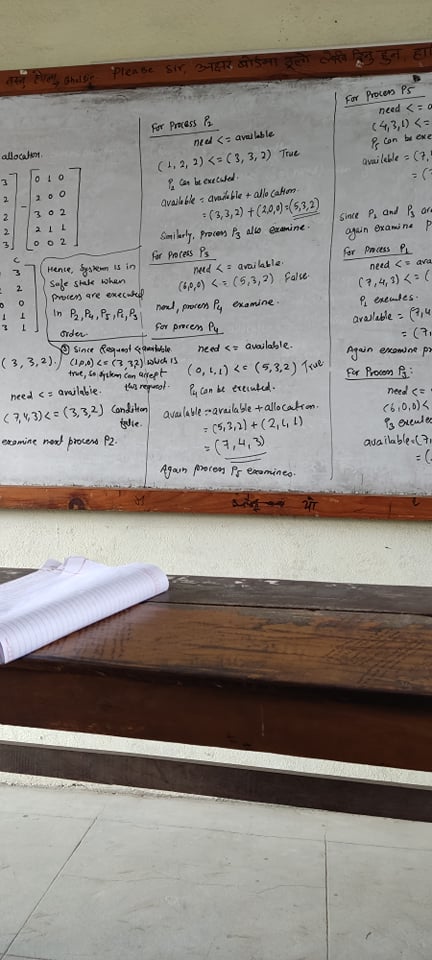 Please sir,
allocation.
3 0 1 0
2 - 2 0 0
2 3 0 2
2 2 1 1
3 0 0 2
C
3
2
0
1
1
Hence, System is in
Safe state when
Process are executed
In P2, P4, P5, P1, P3
order.
② Since Request < available
(1,0,0) <= (3,3,2) which is
true, so system can accept
this request.
(3,3,2).
need <= available.
(7,4,3) <= (3,3,2) Condition
false.
examine next process P2.
For Process P2
need <= available
(1,2,2) <= (3,3,2) True
P2 can be executed.
available = available + allocation.
= (3,3,2) + (2,0,0) = (5,3,2)
Similarly, process P3 also examine.
For Process P3
need <= available.
(6,0,0) <= (5,3,2) False.
next, process P4 examine.
For process P4
need <= available.
(0,1,1) <= (5,3,2) True
P4 can be executed.
available = available + allocation.
= (5,3,2) + (2,1,1)
= (7,4,3)
Again process P5 examines.
For Process P5
need <= a
(4,3,1) <=
P5 can be exe
available = (7,
= (
Since P1 and P3 are
again examine P
For Process P1
need <= ava
(7,4,3) <= (
P1 executes.
available = (7,4
= (7,
Again examine pr
For Process P3:
need <=
(6,0,0) <
P3 execute
available = (7,
= (